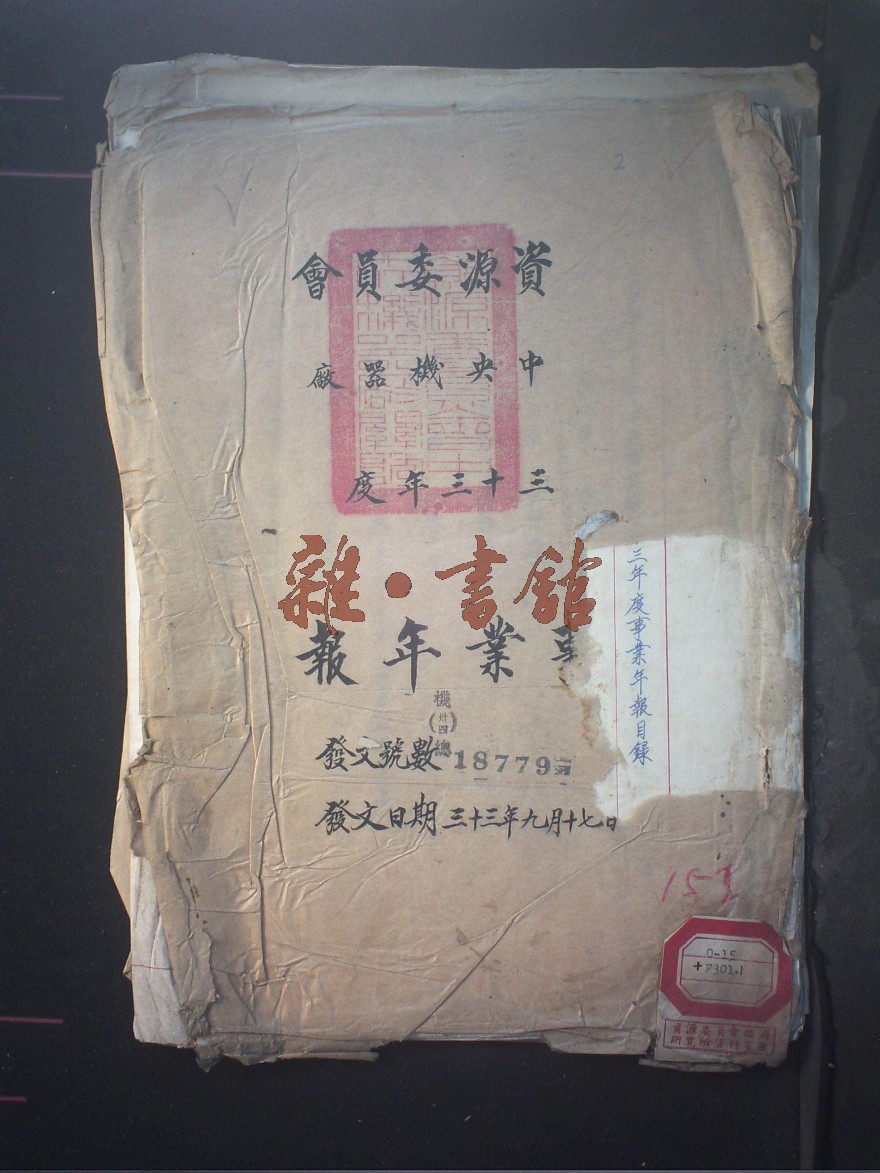 2
資源委員會
中央機器廠
三十三年度
雜·書館
事業年報
三年度事業年報目錄
機
(卅四)
總
發文號數 18779
發文日期 三十三年九月十七日
153
0-15
+F301.1
資源委員會經濟
研究所資料室